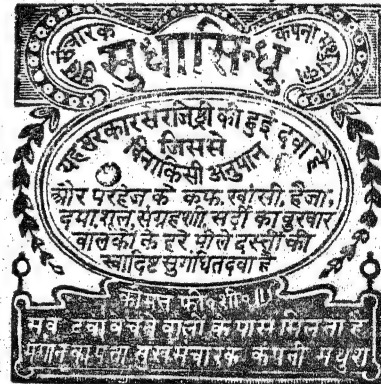 सुख संचारक कंपनी मथुरा का
सुधासिन्धु
यह सरकार से रजिष्ट्री की हुई दवा है
जिससे
बिना किसी अनुपान
और परहेज के कफ, खांसी, हैजा,
दमा, शूल, संग्रहणी, सर्दी का बुखार
बालकों के हरे पीले दस्तों की
स्वादिष्ट सुगंधित दवा है
कीमत फी शी० ॥)
सब दवा बेचने वालों के पास मिलता है
मंगाने का पता सुखसंचारक कंपनी मथुरा